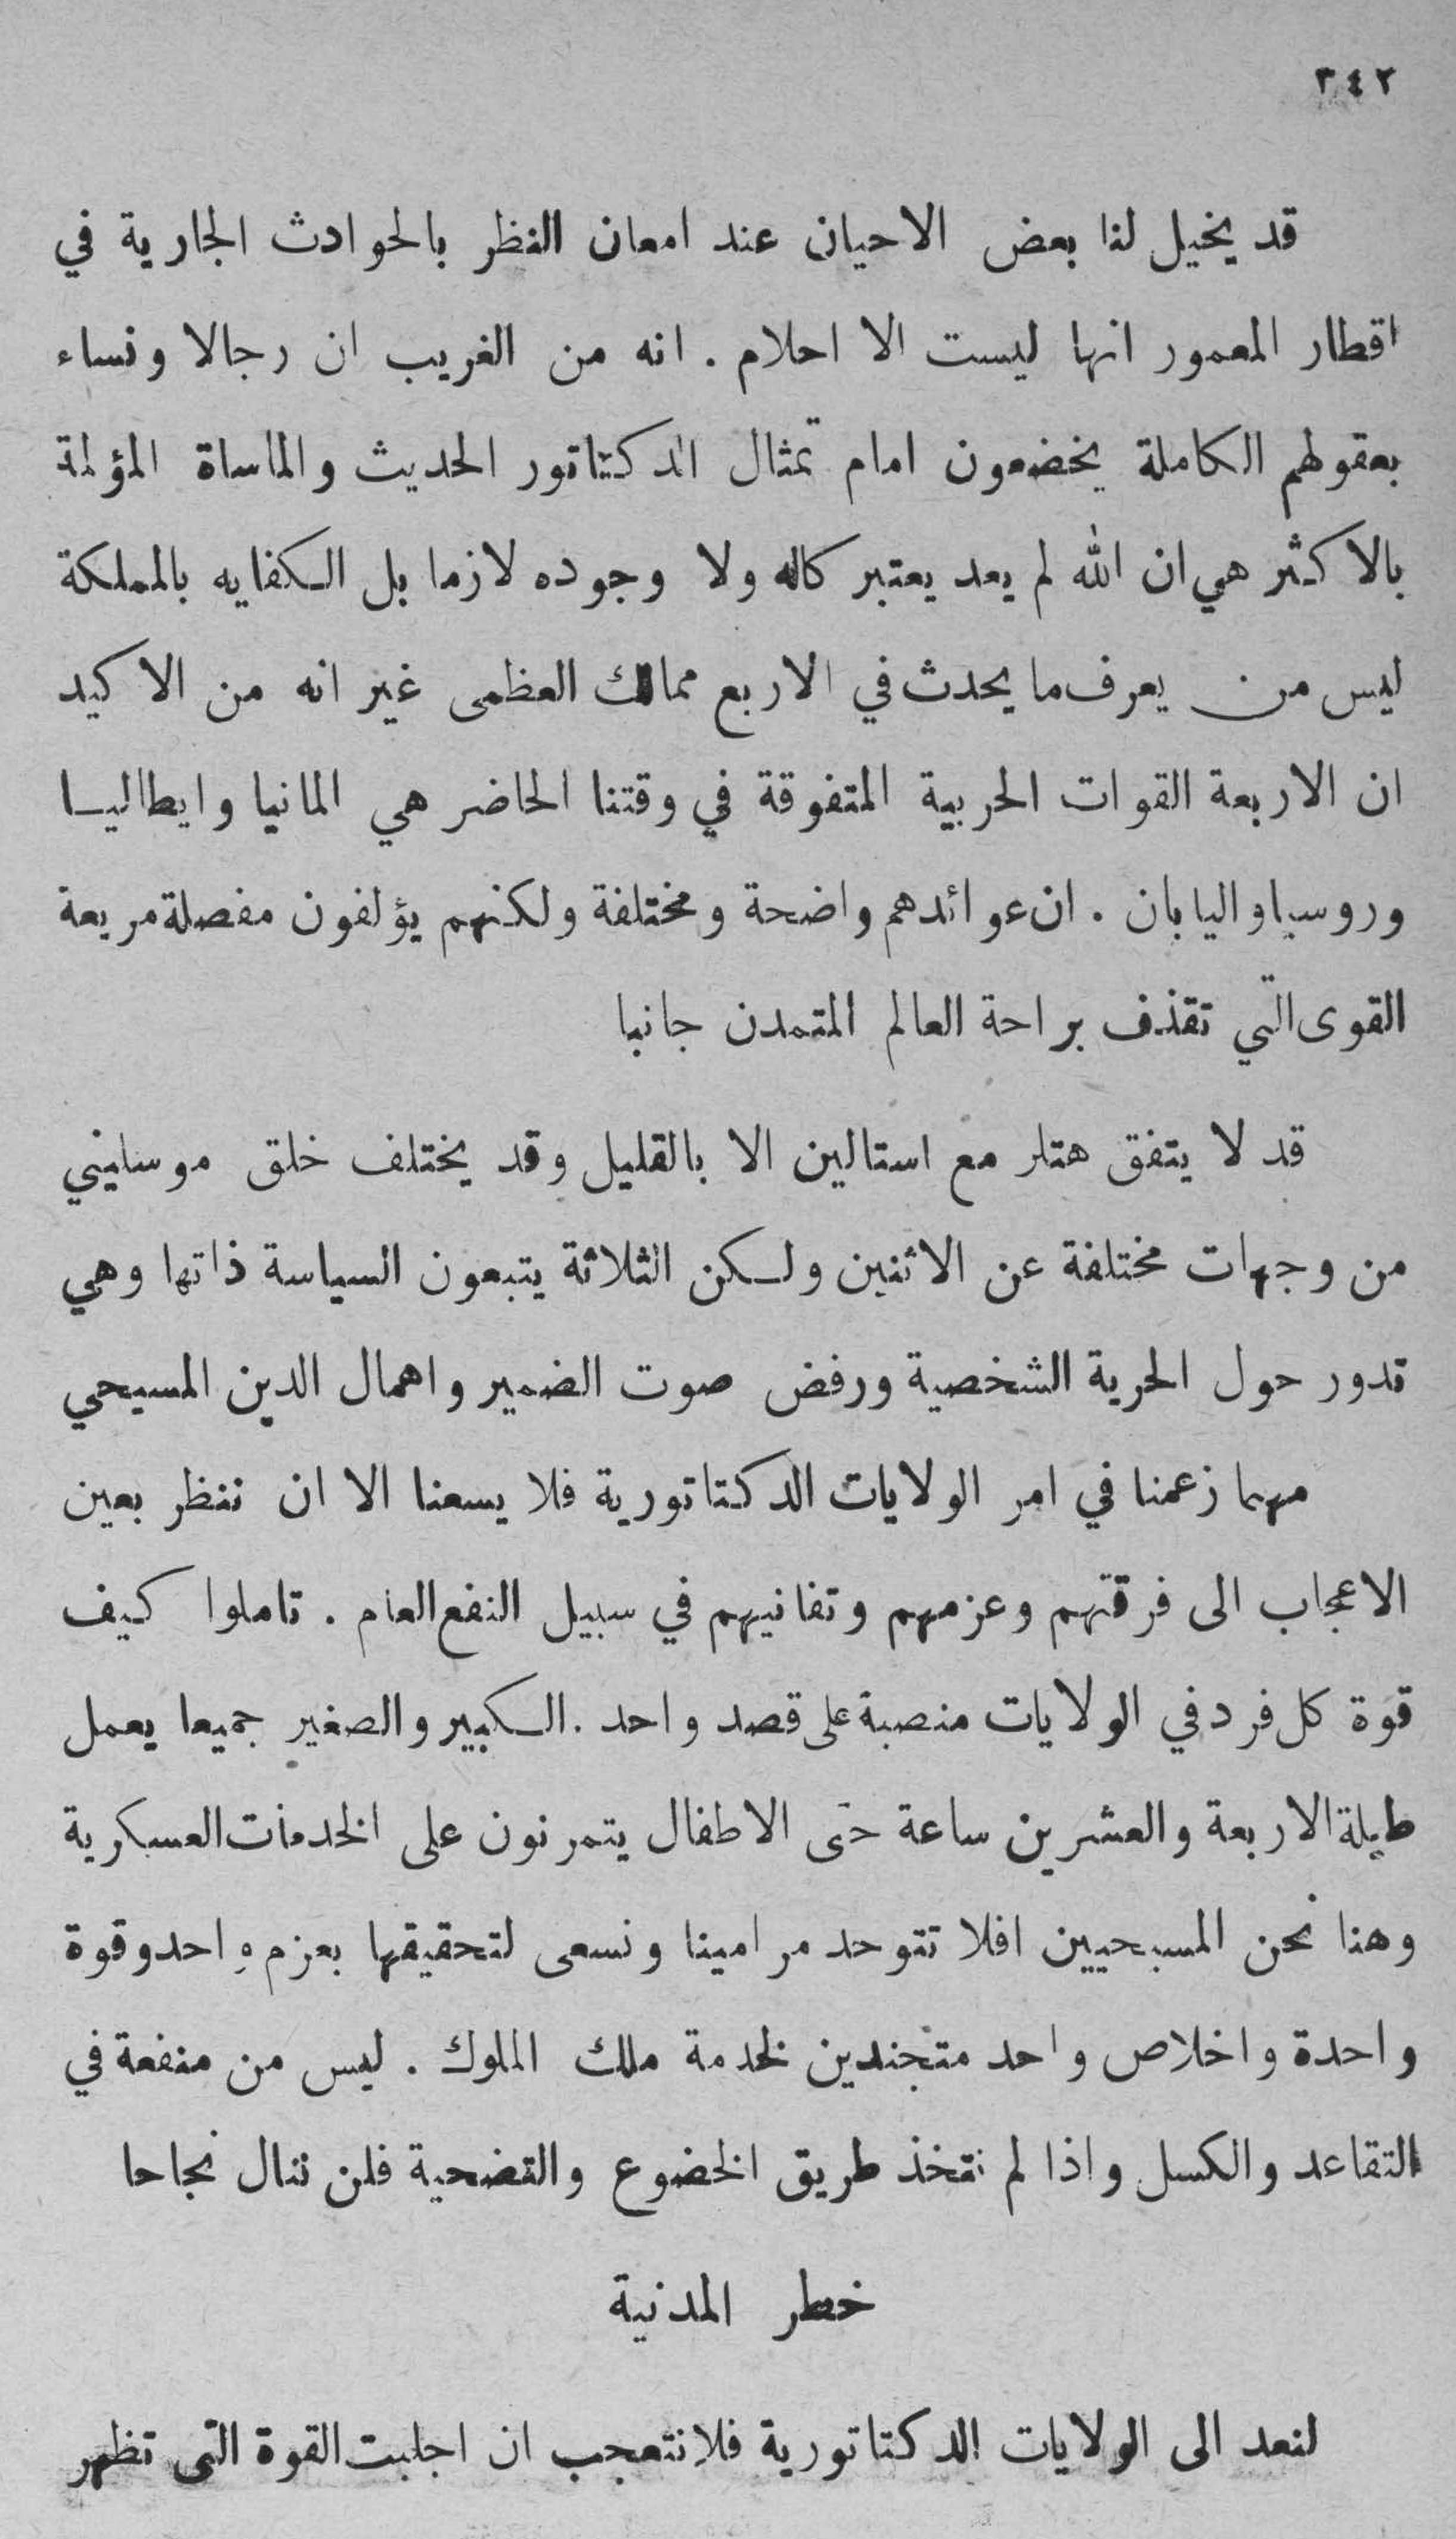 ٣٤٢
قد يخيل لنا بعض الاحيان عند امعان النظر بالحوادث الجارية في
اقطار المعمور انها ليست الا احلام . انه من الغريب ان رجالا ونساء
بعقولهم الكاملة يخضعون امام تمثال الدكتاتور الحديث والماساة المؤلمة
بالاكثر هي ان الله لم يعد يعتبر كاله ولا وجوده لازما بل الكفايه بالمملكة
ليس من يعرف ما يحدث في الاربع ممالك العظمى غير انه من الاكيد
ان الاربعة القوات الحربية المتفوقة في وقتنا الحاضر هي المانيا وايطاليا
وروسيا واليابان . ان عوائدهم واضحة ومختلفة ولكنهم يؤلفون مفصلة مربعة
القوى التي تقذف براحة العالم المتمدن جانبا
قد لا يتفق هتلر مع استالين الا بالقليل وقد يختلف خلق موسليني
من وجهات مختلفة عن الاثنين ولكن الثلاثة يتبعون السياسة ذاتها وهي
تدور حول الحرية الشخصية ورفض صوت الضمير واهمال الدين المسيحي
مهما زعمنا في امر الولايات الدكتاتورية فلا يسعنا الا ان ننظر بعين
الاعجاب الى فرقتهم وعزمهم وتفانيهم في سبيل النفع العام . تاملوا كيف
قوة كل فرد في الولايات منصبة على قصد واحد . الكبير والصغير جميعا يعمل
طيلة الاربعة والعشرين ساعة حتى الاطفال يتمرنون على الخدمات العسكرية
وهنا نحن المسيحيين افلا تتوحد مرامينا ونسعى لتحقيقها بعزم واحد وقوة
واحدة واخلاص واحد متجندين لخدمة ملك الملوك . ليس من منفعة في
التقاعد والكسل واذا لم نتخذ طريق الخضوع والتضحية فلن ننال نجاحا
خطر المدنية
لنعد الى الولايات الدكتاتورية فلا نتعجب ان اجلبت القوة التى تظهر